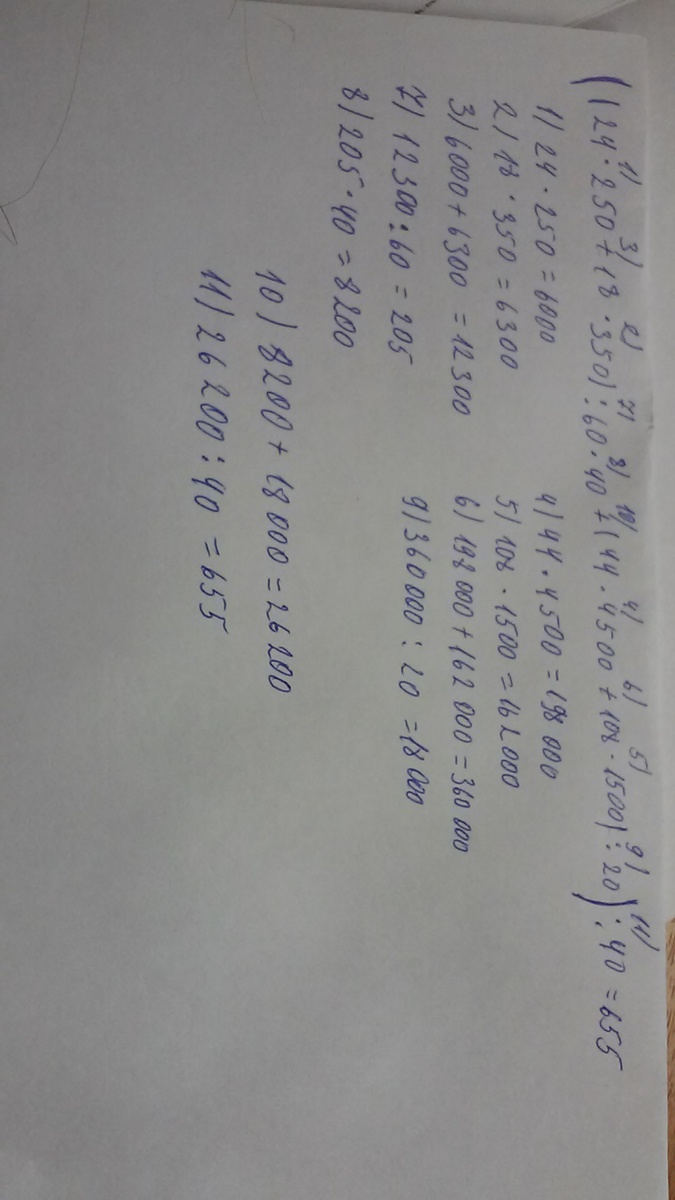 1) 3) 2) 7) 8) 10) 4) 6) 5) 9) 11)
((24·250+18·350):60·40+(44·4500+108·1500):20):40=655
1) 24·250=6000
2) 18·350=6300
3) 6000+6300=12300
7) 12300:60=205
8) 205·40=8200
4) 44·4500=198 000
5) 108·1500=162000
6) 198000+162 000=360 000
9) 360 000:20=18 000
10) 8200+18 000=26 200
11) 26 200:40=655